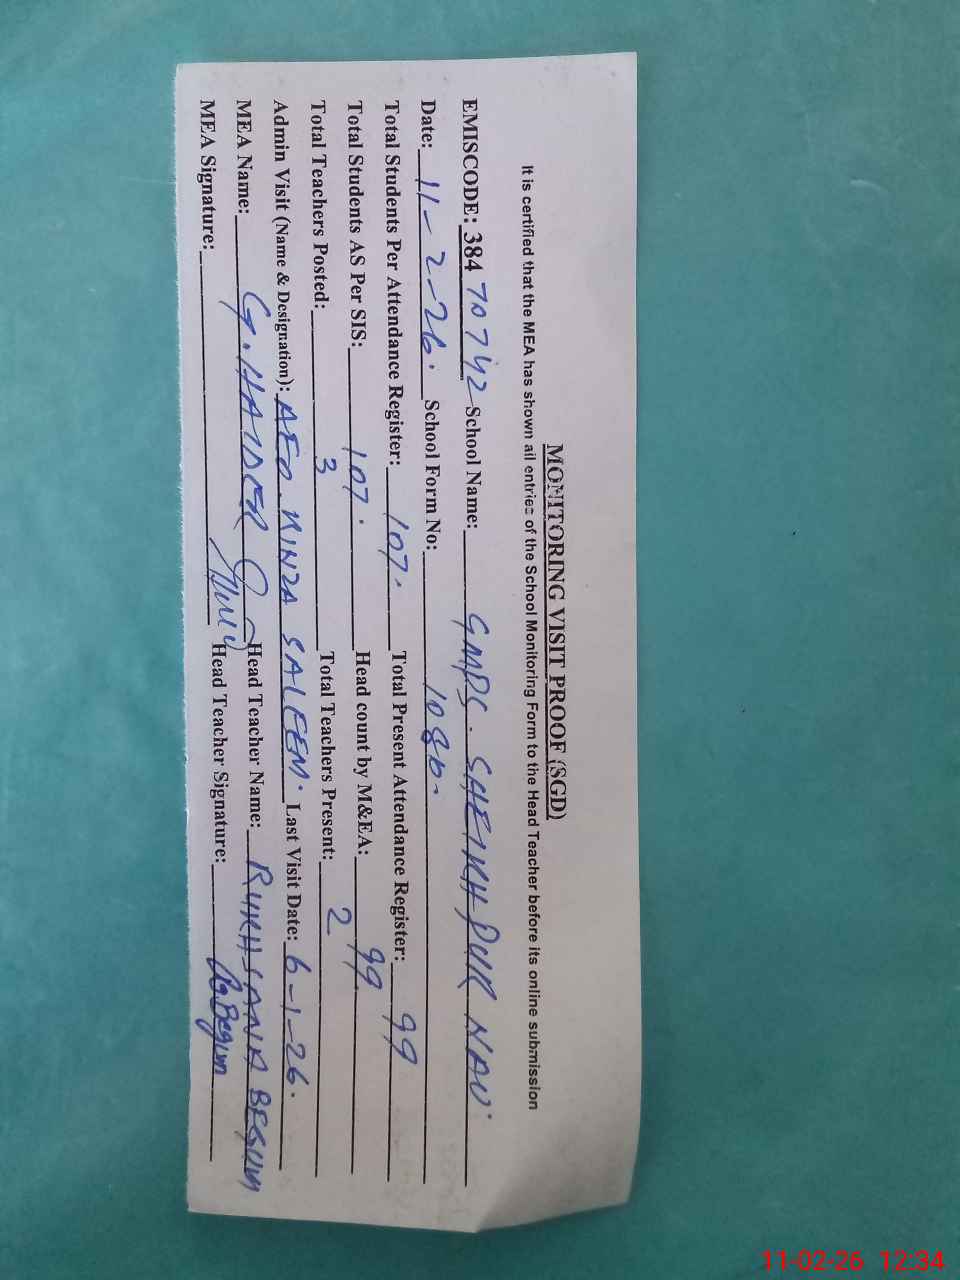 MONITORING VISIT PROOF (SGD)
It is certified that the MEA has shown all entries of the School Monitoring Form to the Head Teacher before its online submission
EMISCODE: 384 70742 School Name: GMPS. SHEIKH PUR NAU.
Date: 11-2-26. School Form No: 1086.
Total Students Per Attendance Register: 107. Total Present Attendance Register: 99
Total Students AS Per SIS: 107. Head count by M&EA: 99
Total Teachers Posted: 3 Total Teachers Present: 2
Admin Visit (Name & Designation): AEO. KINZA SALEEM. Last Visit Date: 6-1-26.
MEA Name: G. HAIDER Head Teacher Name: RUKHSANA BEGUM
MEA Signature: Head Teacher Signature: R. Begum
11-02-26 12:34